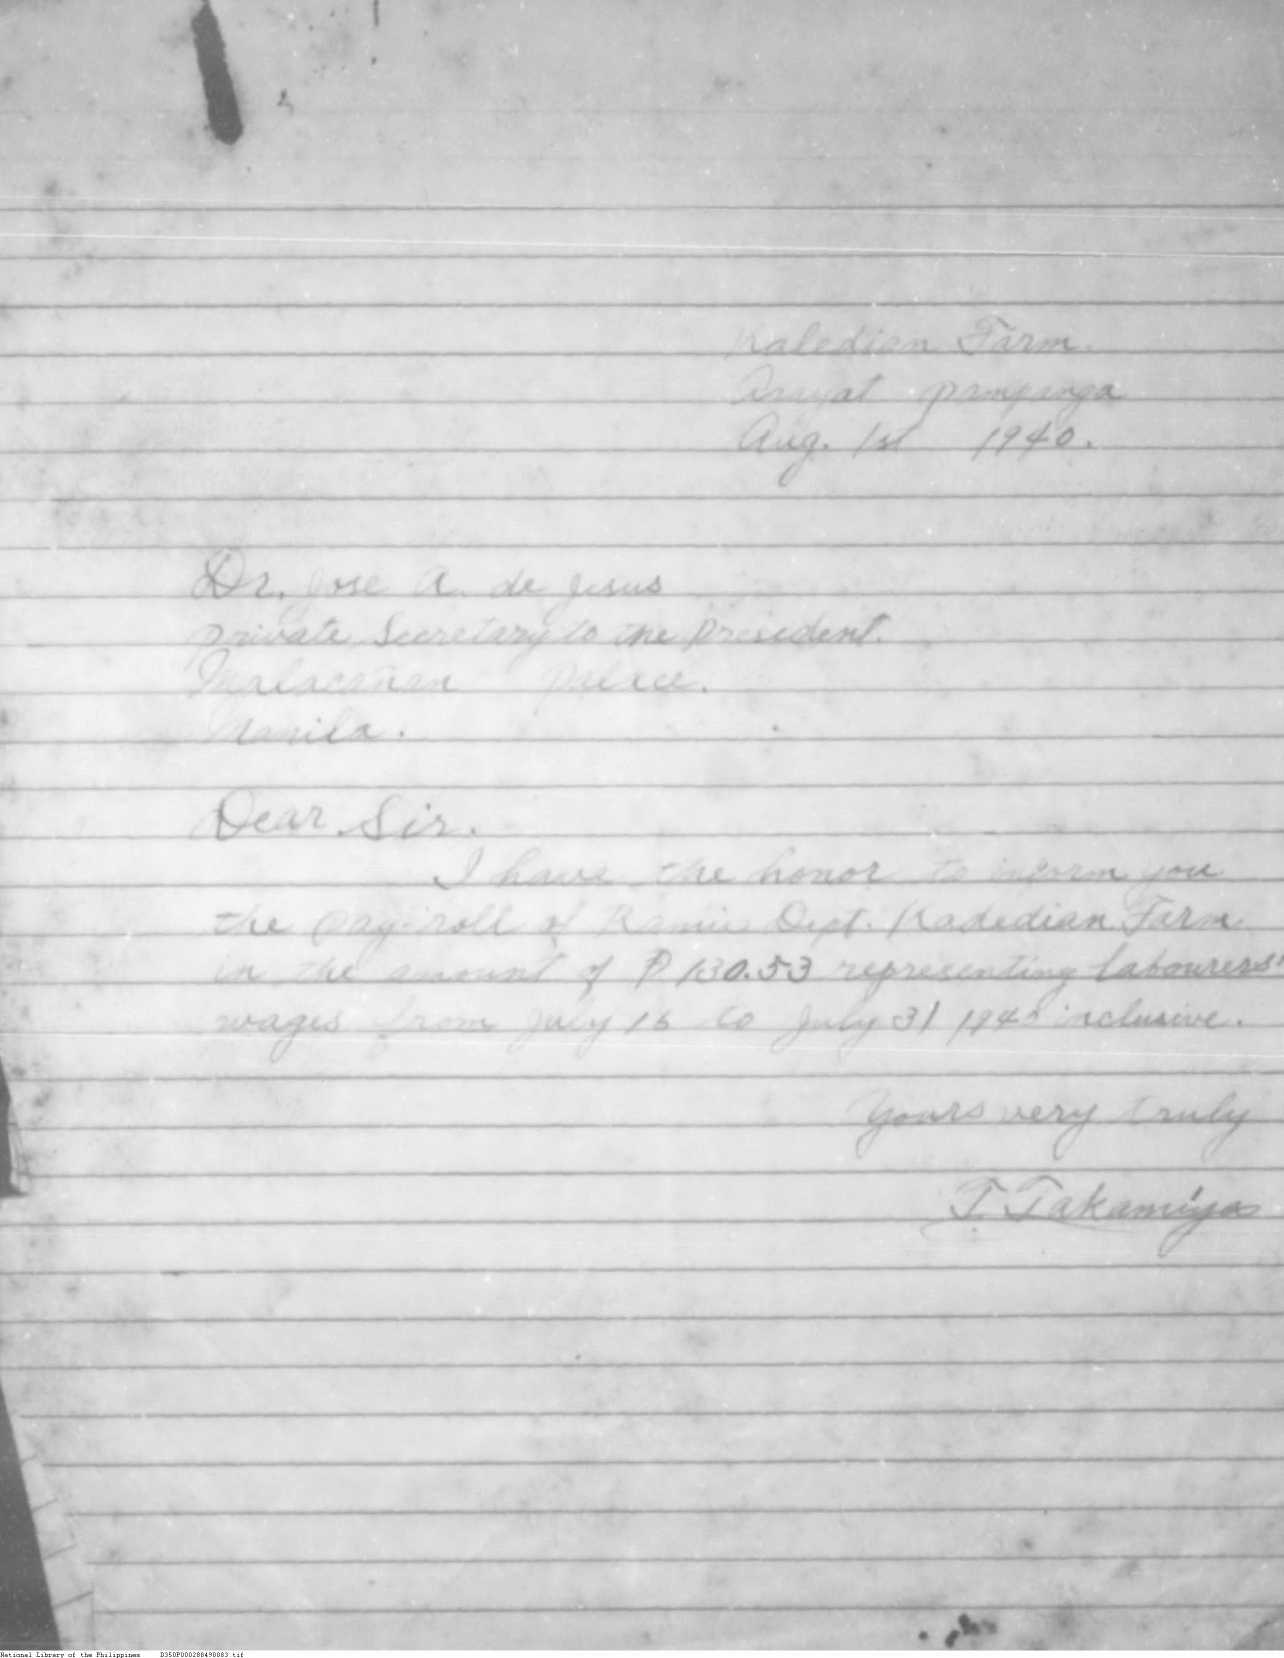 Kaledian Farm.
Arayat Pampanga
Aug. 1st 1940.
Dr. Jose A. de Jesus
Private Secretary to the President.
Malacañan Palace.
Manila.
Dear Sir.
I have the honor to inform you
the pay-roll of Ramie Dept. Kadedian Farm
in the amount of ₱ 130.53 representing labourers'
wages from July 16 to July 31 1940 inclusive.
Yours very truly
T. Takamiya
National Library of the Philippines